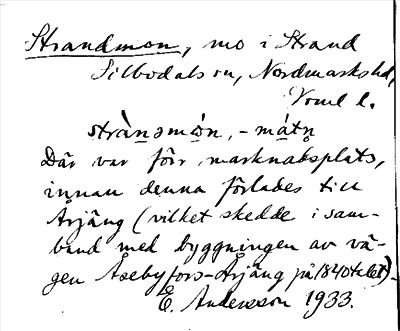 Strandmon, mo i Strand
Silbodals sn, Nordmarks hd,
Vrml l.
stràn̲əmó̲n, -má̲tn̥
Där var förr marknadsplats,
innan denna förlades till
Årjäng (vilket skedde i sam-
band med byggningen av vä-
gen Åsebyfors-Årjäng på 1840talet).
E. Andersson 1933.